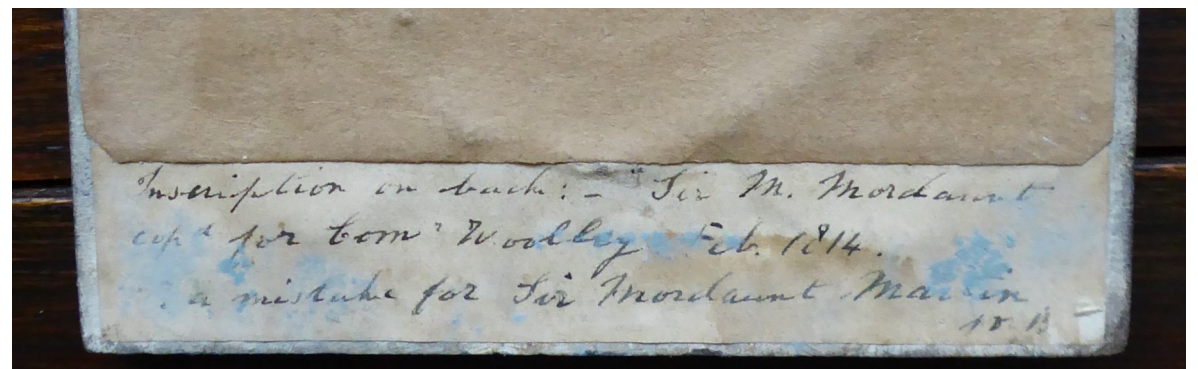 Inscription on back: – "Sir M. Mordaunt
copd for Comr Woolley Feb. 1814.
a mistake for Sir Mordaunt Martin